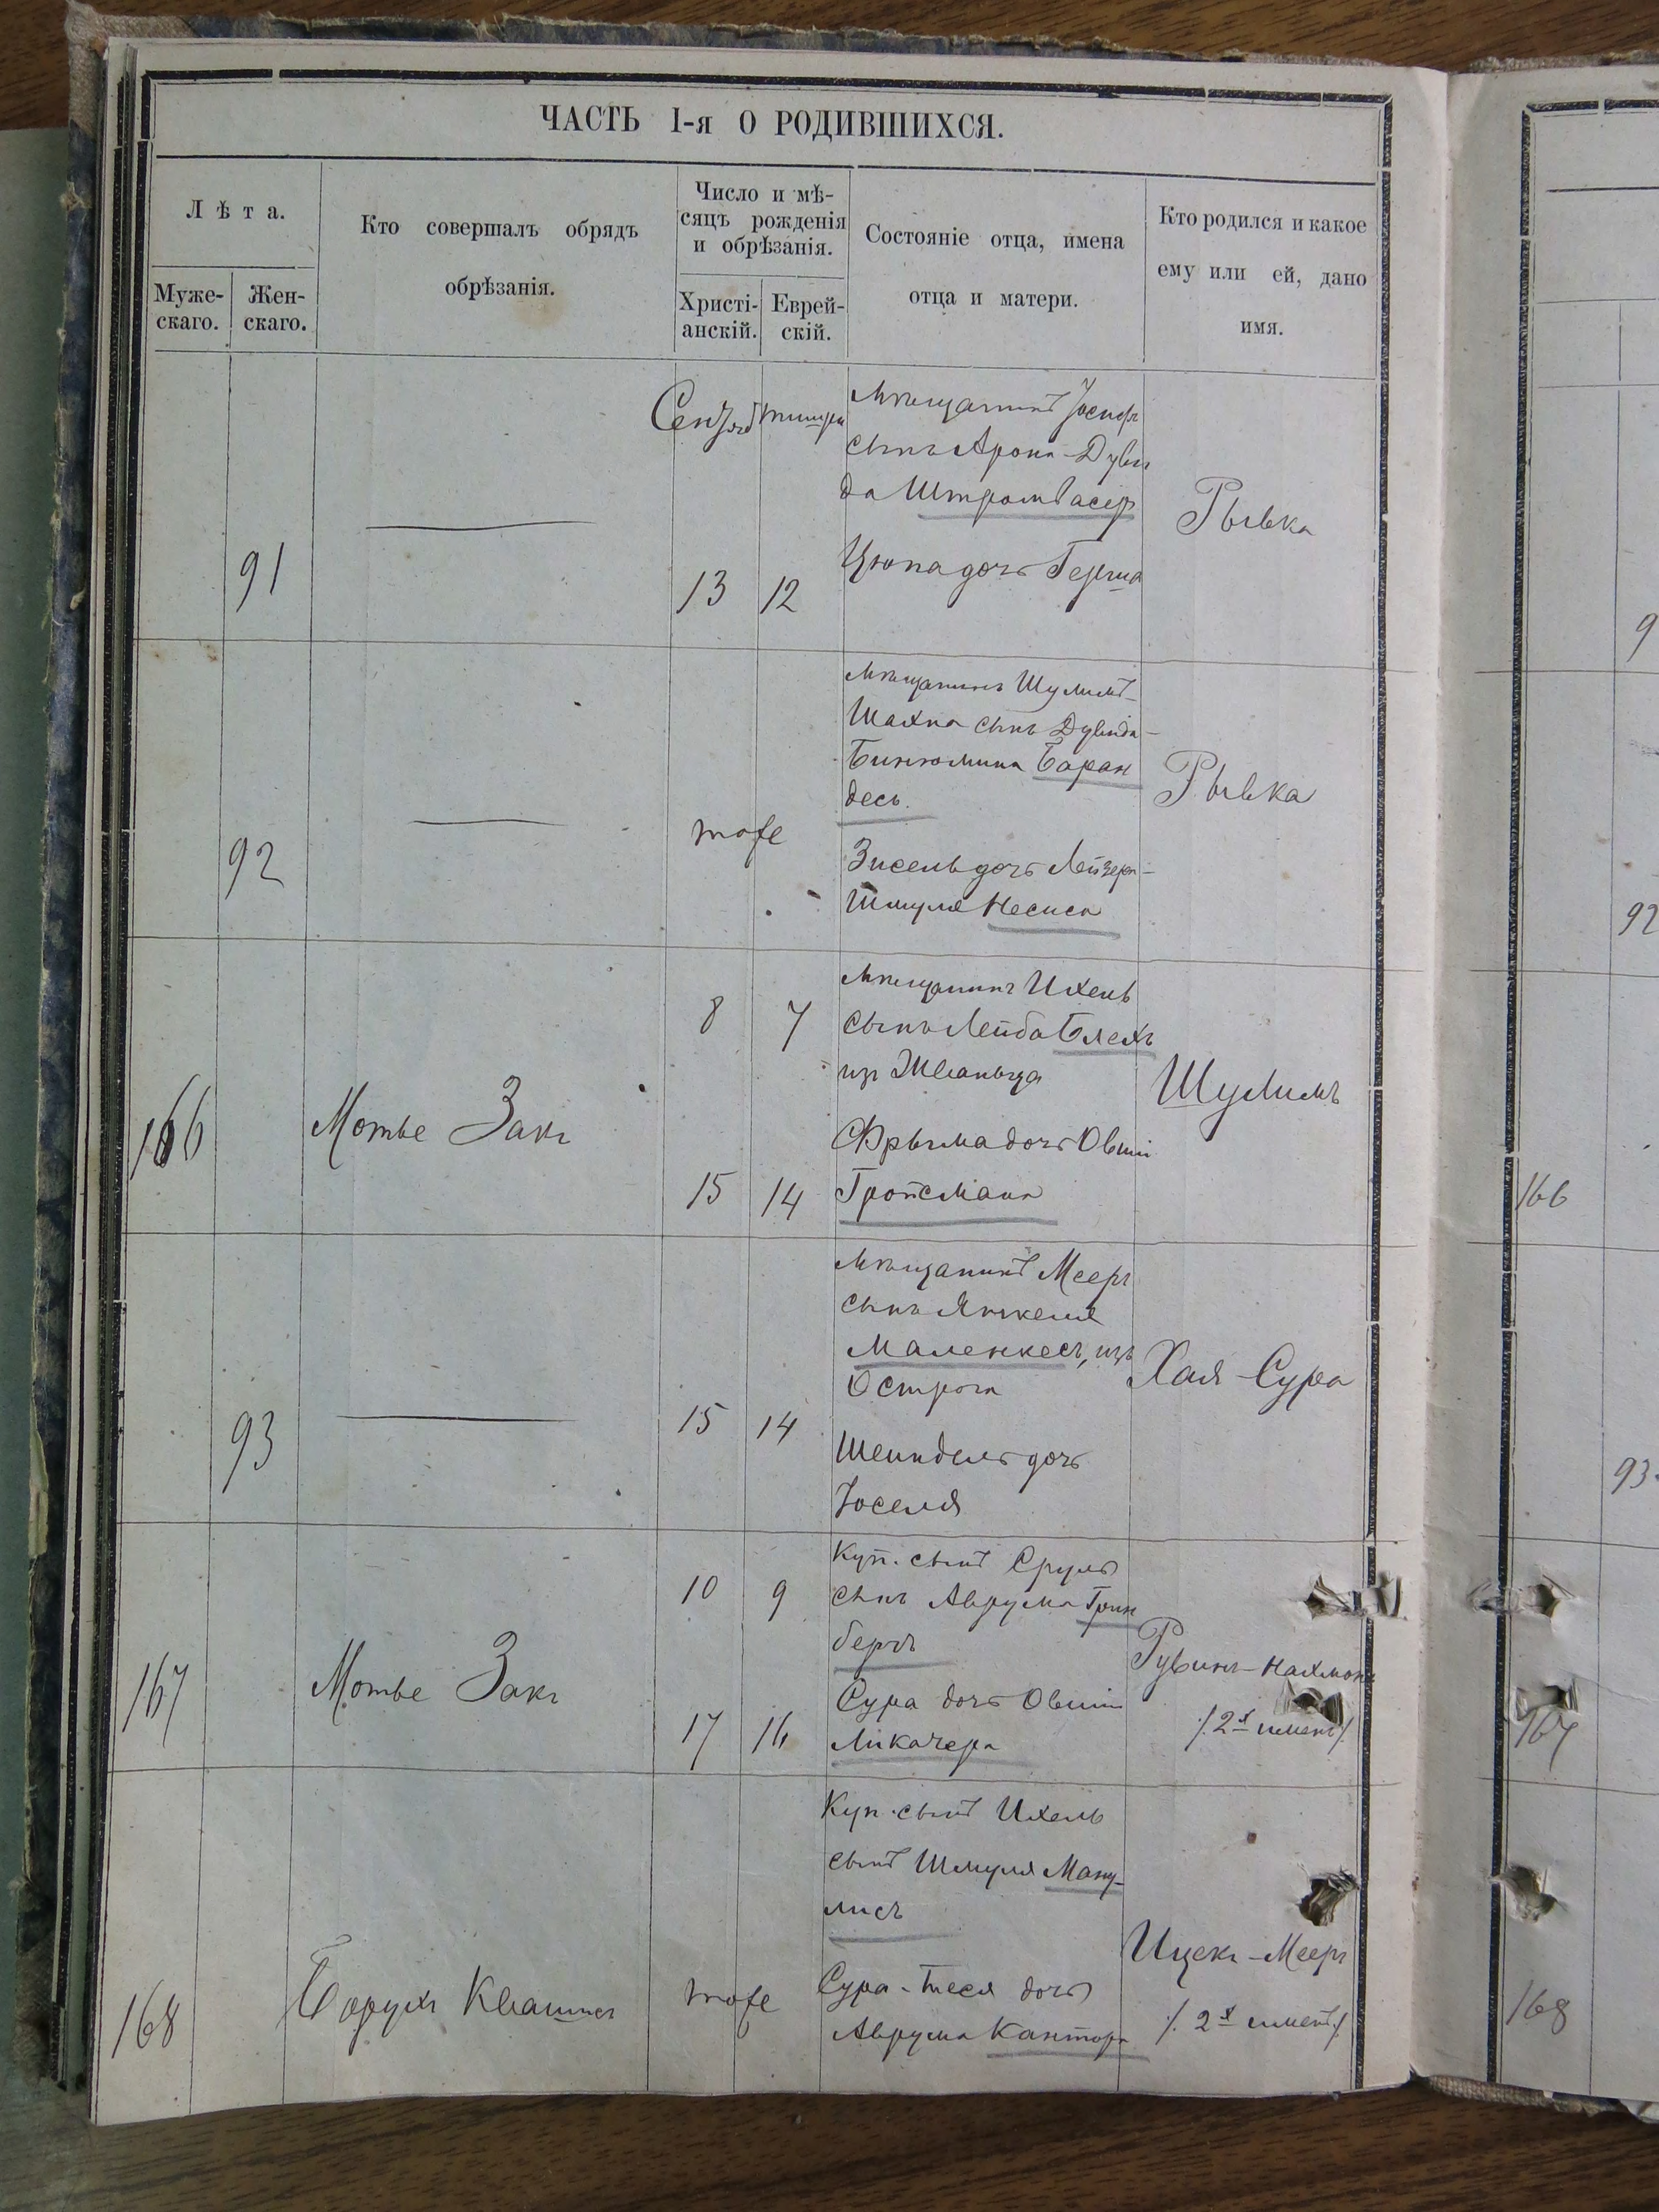 ЧАСТЬ I-я О РОДИВШИХСЯ.
Лѣта.
Муже-
скаго.
Жен-
скаго.
Кто совершалъ обрядъ
обрѣзанія.
Число и мѣ-
сяцъ рожденія
и обрѣзанія.
Христі-
анскій.
Еврей-
скій.
Состояніе отца, имена
отца и матери.
Кто родился и какое
ему или ей, дано
имя.
91
13
12
мѣщанинъ Іосифъ
сынъ Арона-Дуви
да Штромвасеръ
Цюпа дочь Герша
Рывка
92
тоже
мѣщанинъ Шулимъ-
Шахна сынъ Дувида-
Бинюмина Баран
десъ.
Зисель дочь Лейзера-
Шмуля Несиса
Рывка
166
Мотье Закъ
8
7
15
14
мѣщанинъ Ихель
сынъ Лейба Блехъ
изъ Жванца
Фрыма дочь Овши
Гройсмана
Шулимъ
93
15
14
мѣщанинъ Мееръ
сынъ Янкеля
Маленкесъ, изъ
Острога
Шейндель дочь
Іоселя
Хая-Сура
167
Мотье Закъ
10
9
17
16
Куп. сынъ Сруль
сынъ Аврума Грин
бергъ
Сура дочь Овши
Ликачера
Рувинъ-Нахмон
/. 2х именъ/.
168
Борухъ
тоже
Куп. сынъ Ихель
сынъ Шмуля Ману-
лисъ
Сура-Теся дочь
Аврума Кантора
Ицекъ-Мееръ
/. 2х именъ/.
9
92
166
93.
167
168